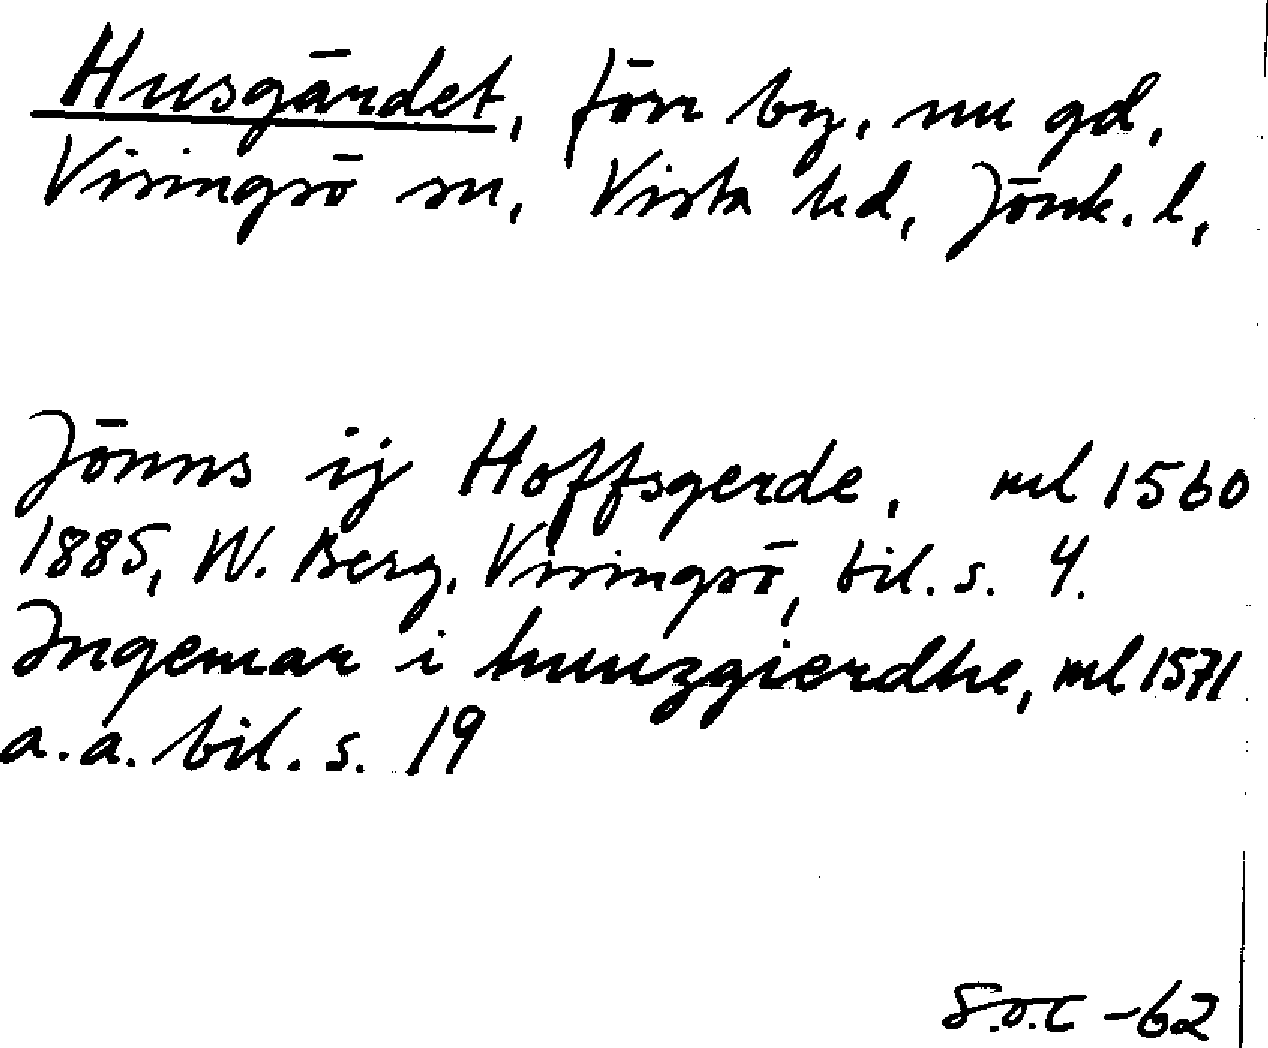 Husgärdet, förr by, nu gd,
Visingsö sn, Vista hd, Jönk. l,
Jönns ij Hoffsgerde, ml 1560
1885, W. Berg, Visingsö, bil. s. 4.
Ingemar i huuzgierdhe, ml 1571
a.a. bil. s. 19
S.O.C -62